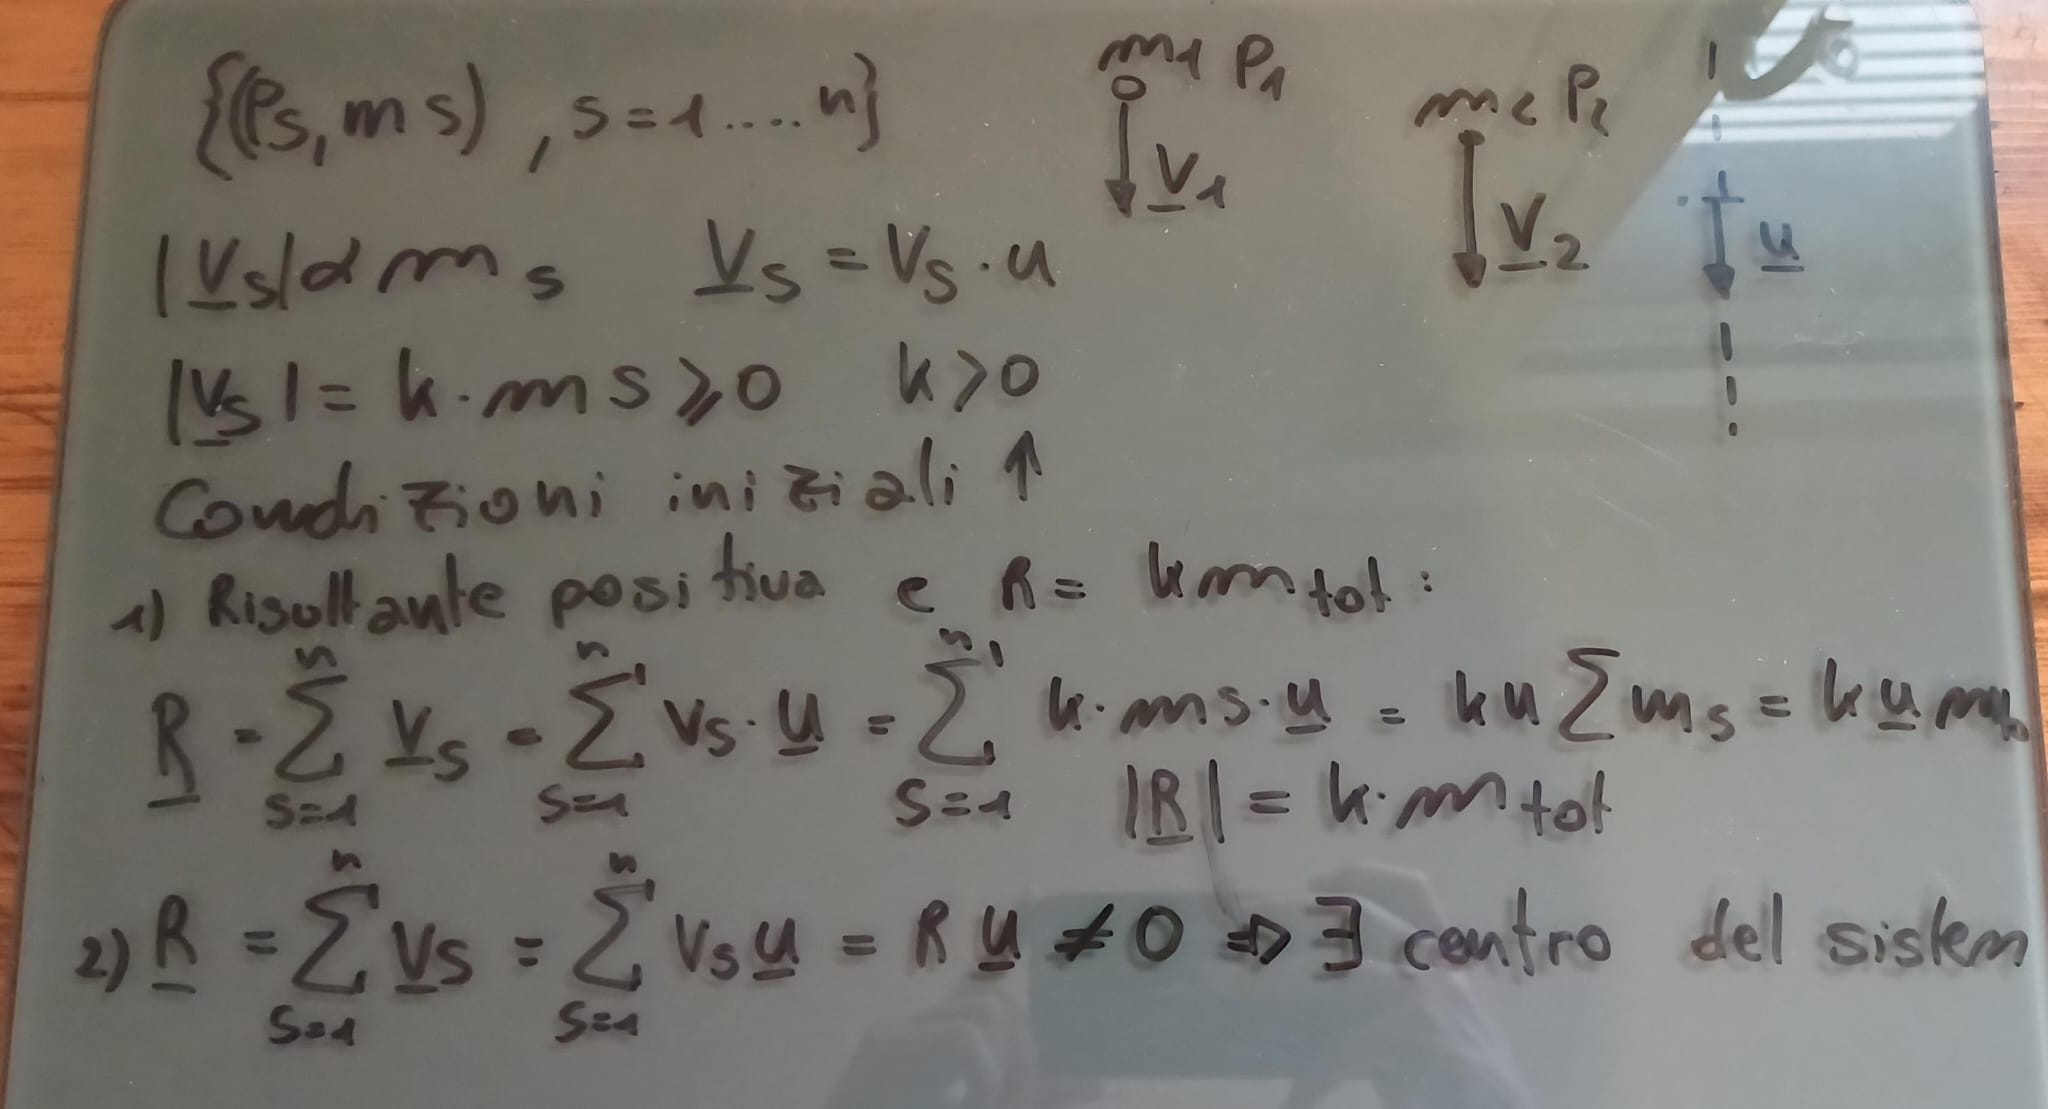 {(Ps, ms), s=1....n}
m1 P1
V1
m2 P2
V2
u
|Vs| α ms   Vs = Vs · u
|Vs| = k · ms ⩾ 0   k > 0
Condizioni iniziali ↑
1) Risultante positiva e R = k mtot :
R = n∑s=1 Vs = n∑s=1 Vs · u = n∑s=1 k · ms · u = k u ∑ ms = k u
|R| = k · mtot
2) R = n∑s=1 Vs = n∑s=1 Vs u = R u ≠ 0 ⇒ ∃ centro del sistem